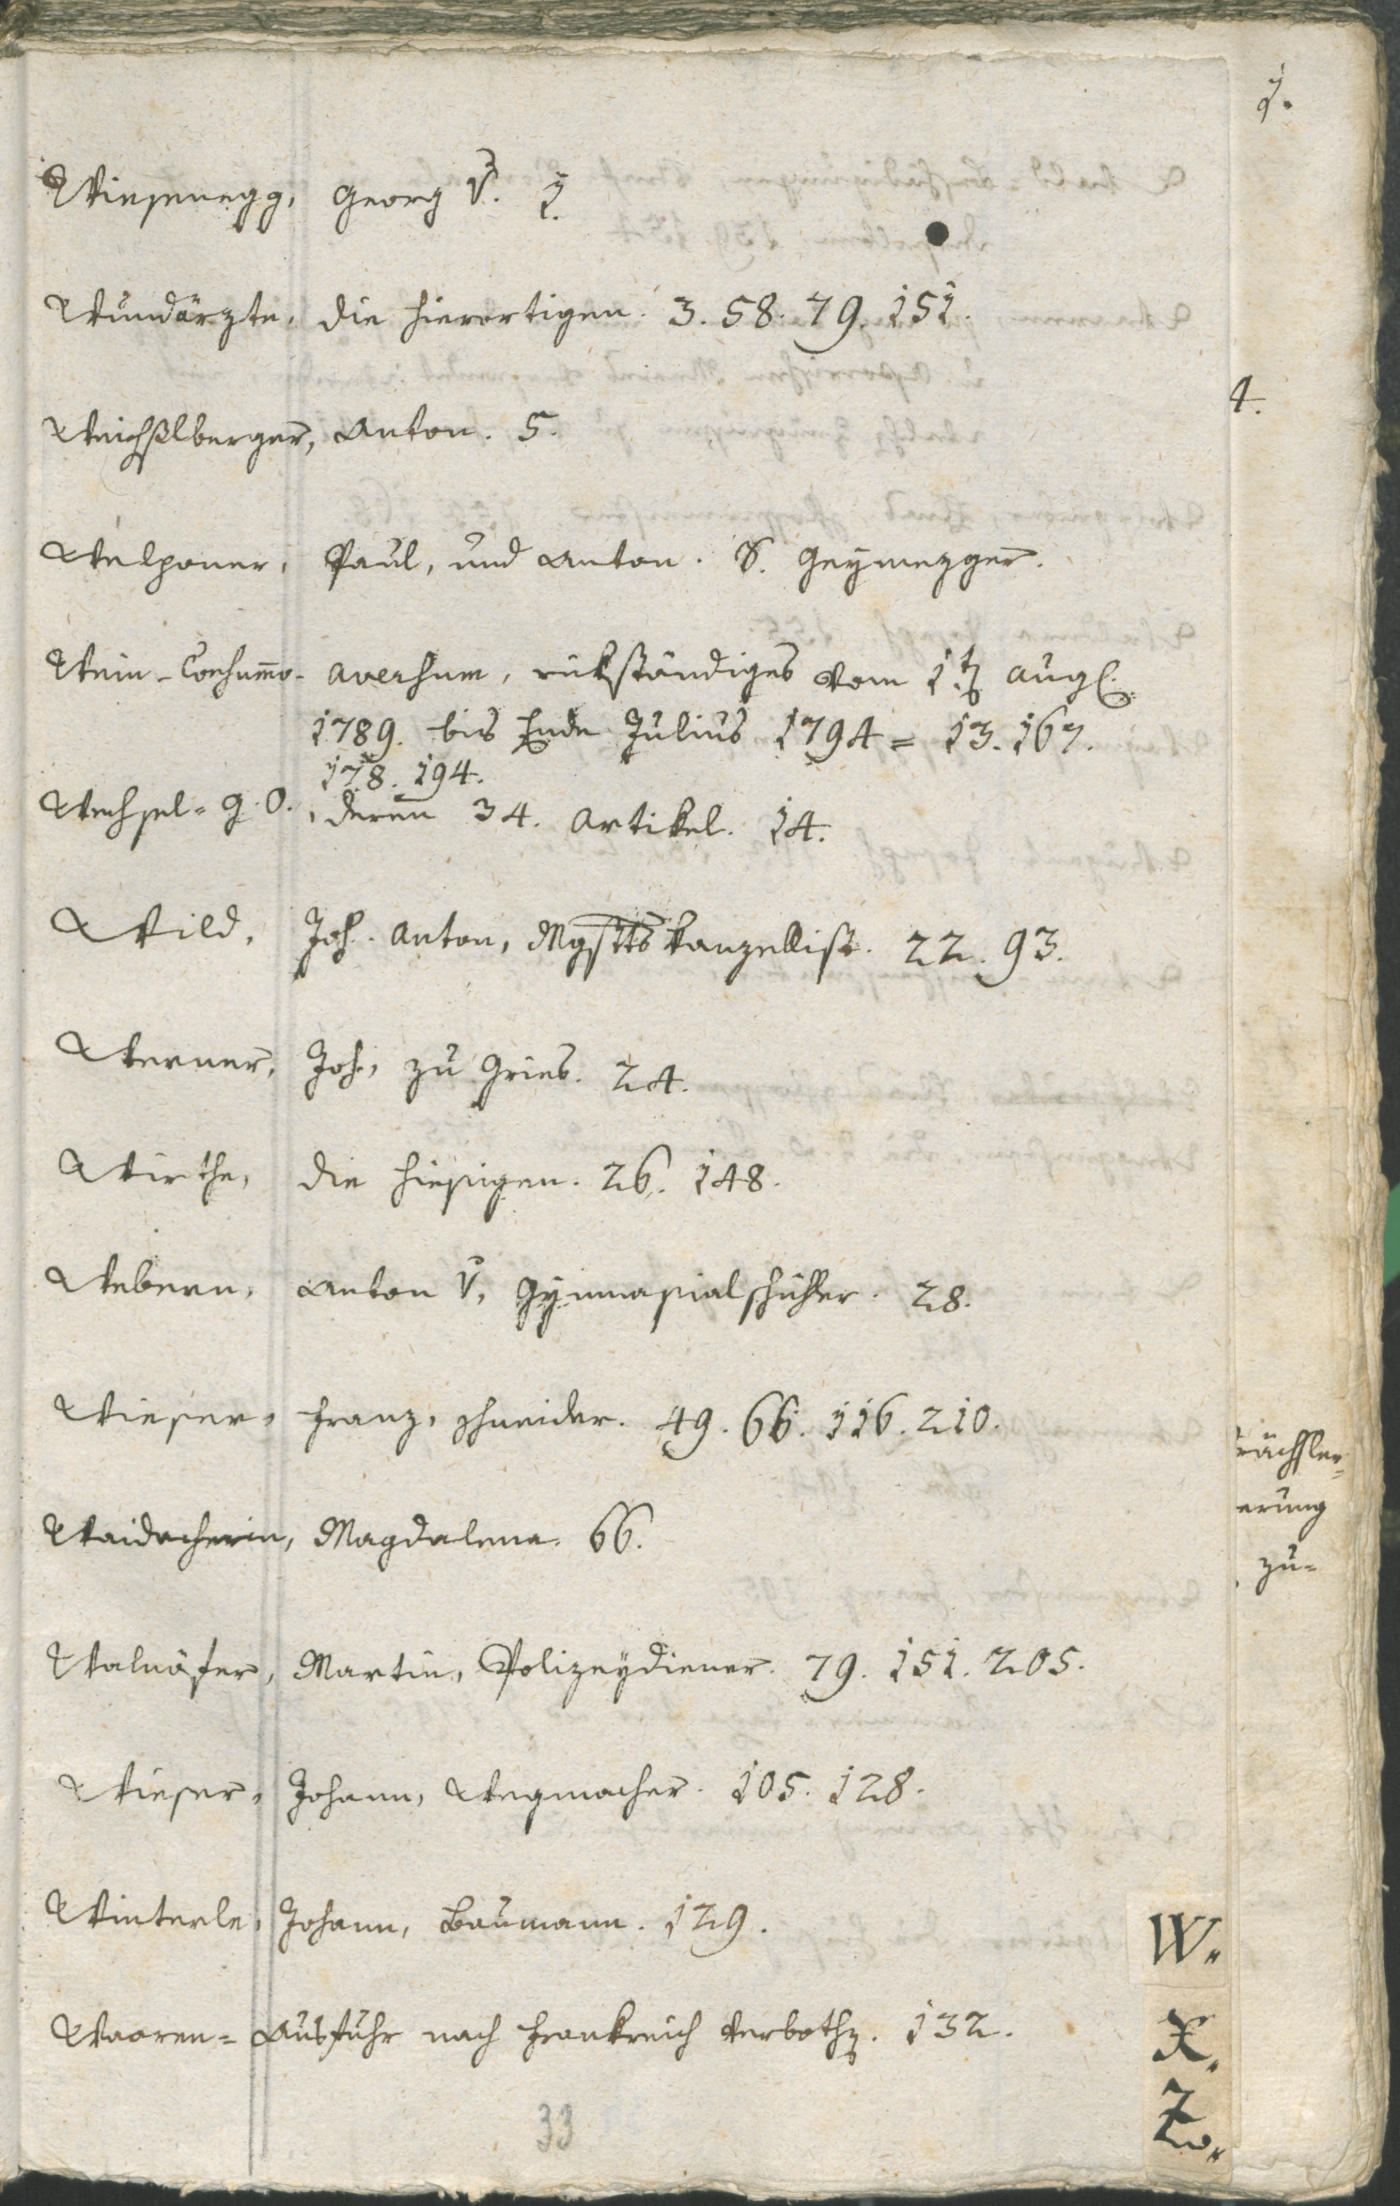 1.
Wiesenegg, Georg v. 1.
Wundärzte, die hierortigen. 3. 58. 79. 151.
4.
Weichßlberger, Anton. 5.
Welponer, Paul, und Anton. S. Geymezger.
Wein-Consumo- Aversum, rükständiges vom 1.t
1789. bis Ende Julius 1794 = 13. 167.
178. 194.
Wechsel-G. O., deren 34. Artikel. 14.
Wild, Joh. Anton, Mgstts Kanzellist. 22. 93.
Werner, Joh, zu Gries. 24.
Wirthe, die hiesigen. 26. 148.
Webern, Anton v, Gymnasialschüler. 28.
Wieser, Franz, Schneider. 49. 66. 116. 210.
Waidacherin, Magdalena. 66.
erung
zu-
Walnöfer, Martin, Polizeydiener. 79. 151. 205.
Wieser, Johann, Wegmacher. 105. 128.
Winterle, Johann, Baumann. 129.
W.
Waaren- Ausfuhr nach Frankreich verboth. 132.
X.
Z.
33